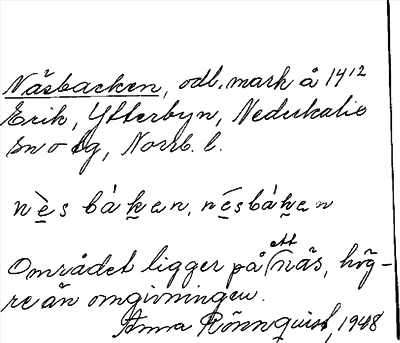 Näsbacken, odl. mark å 14¹²
Erik, Ytterbyn, Nederkalix
sn o tg, Norrb. l.
nè̱s bák̲en, né̱sbák̲en
Området ligger på ett näs, hög-
re än omgivningen.
Anna Rönnquist, 1948